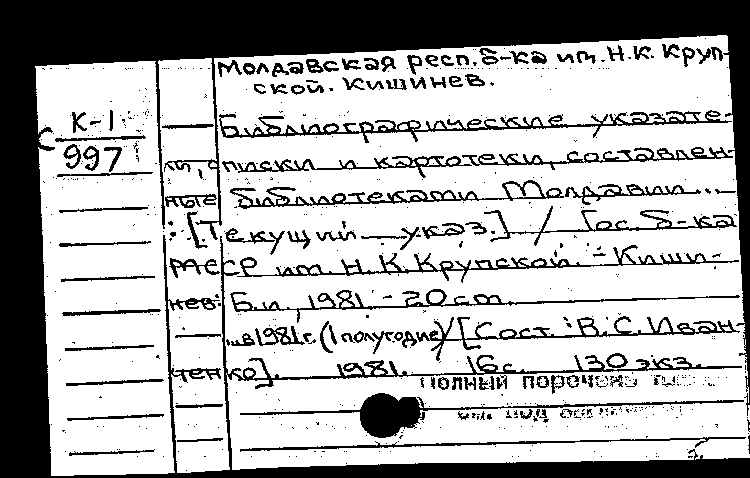 Молдавская респ. б-ка им. Н.К. Круп-
ской. Кишинев.
К-1
С 997
Библиографические указате-
ли, списки и картотеки, составлен-
ные библиотеками Молдавии...
: [Текущий указ.] / Гос. б-ка
МССР им. Н.К. Крупской. - Киши-
нев: Б.и., 1981. - 20 см.
...в 1981 г. (1 полугодие) / [Сост.: В.С. Иван-
ченко]. 1981. 16 с. 130 экз.
полный
см. под